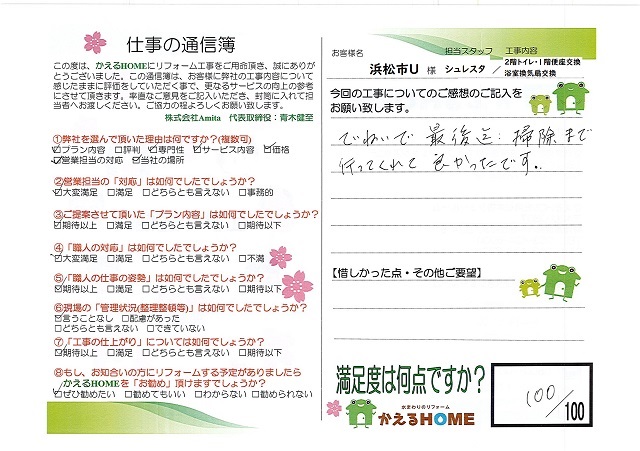 仕事の通信簿
この度は、かえるHOMEにリフォーム工事をご用命頂き、誠にありが
とうございました。この通信簿は、お客様に弊社の工事内容について
感じたままに評価をしていただく事で、更なるサービスの向上の参考
にさせて頂きます。率直なご意見をご記入いただき、封筒に入れて担
当者へお渡しください。ご協力の程よろしくお願い致します。
株式会社Amita 代表取締役：青木健至
①弊社を選んで頂いた理由は何ですか？(複数可)
☑プラン内容 □評判 ☑専門性 ☑サービス内容 ☑価格
☑営業担当の対応 ☑当社の場所
②営業担当の「対応」は如何でしたでしょうか？
☑大変満足 □満足 □どちらとも言えない □事務的
③ご提案させて頂いた「プラン内容」は如何でしたでしょうか？
☑期待以上 □満足 □どちらとも言えない □期待以下
④「職人の対応」は如何でしたでしょうか？
☑大変満足 □満足 □どちらとも言えない □不満
⑤「職人の仕事の姿勢」は如何でしたでしょうか？
☑期待以上 □満足 □どちらとも言えない □期待以下
⑥現場の「管理状況(整理整頓等)」は如何でしたでしょうか？
☑言うことなし □配慮があった
□どちらとも言えない □できていない
⑦「工事の仕上がり」については如何でしょうか？
☑期待以上 □満足 □どちらとも言えない □期待以下
⑧もし、お知合いの方にリフォームする予定がありましたら
かえるHOMEを「お勧め」頂けますでしょうか？
☑ぜひ勧めたい □勧めてもいい □わからない □勧められない
お客様名 担当スタッフ 工事内容
浜松市U 様 シュレスタ／ 2階トイレ・1階便座交換
浴室換気扇交換
今回の工事についてのご感想のご記入を
お願い致します。
ていねいで 最後迄 掃除まで
行ってくれて 良かったです。
【惜しかった点・その他ご要望】
満足度は何点ですか？
100/100
水まわりのリフォーム
かえるHOME